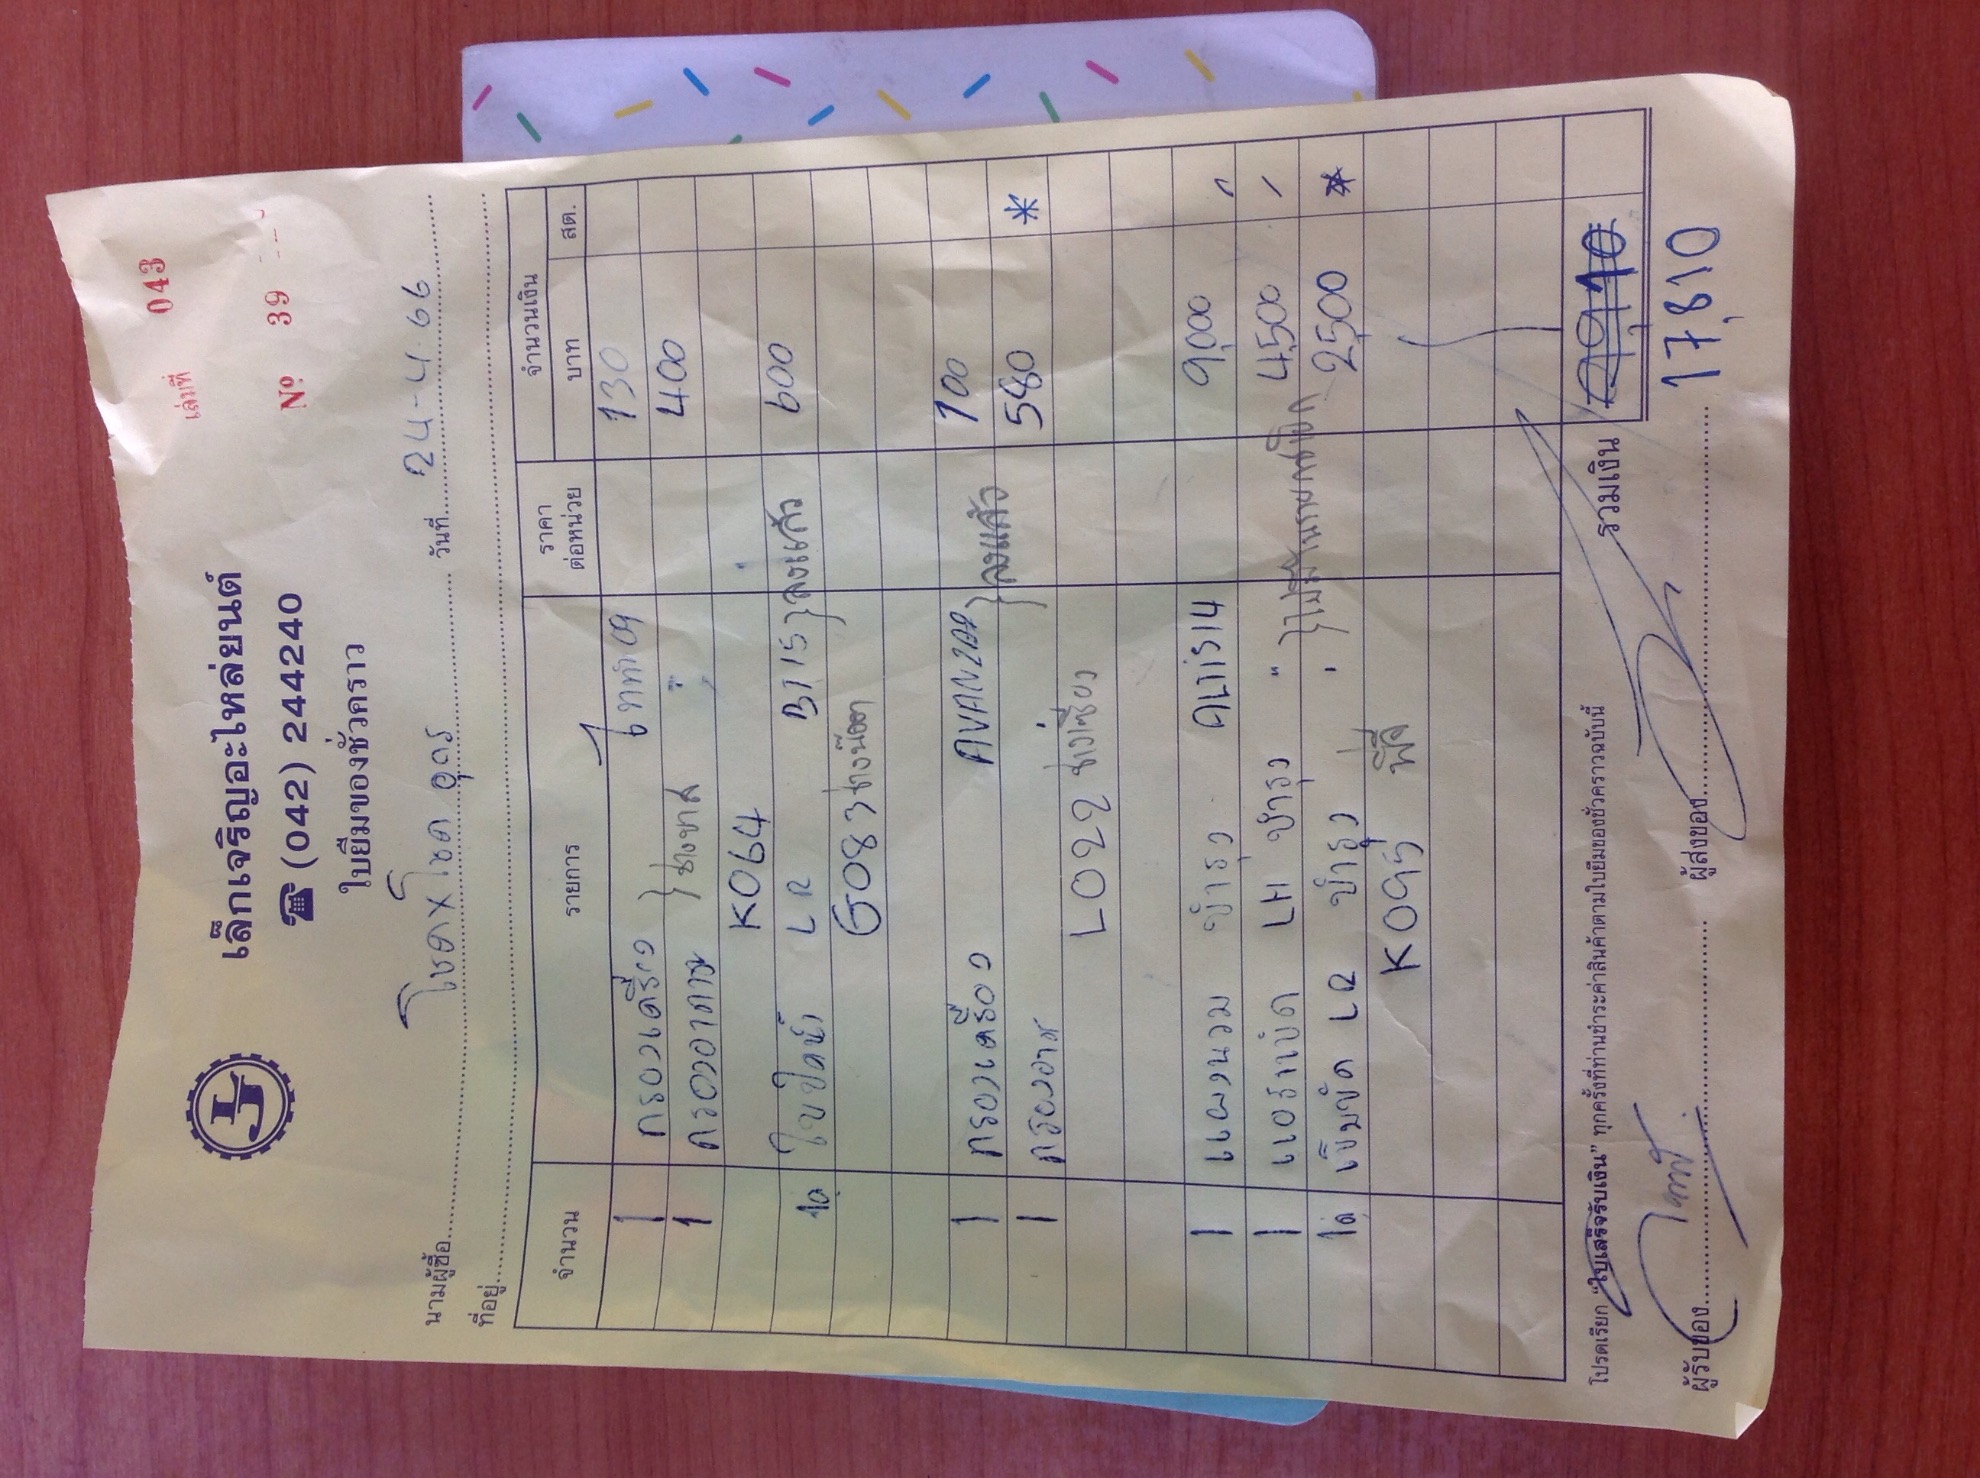 เล่มที่ 043
เล็กเจริญอะไหล่ยนต์
☎ (042) 244240
Nº 39
ใบยืมของชั่วคราว
นามผู้ซื้อ โชค x โชค อุดร วันที่ 24-4-66
ที่อยู่
จำนวน รายการ ราคาต่อหน่วย จำนวนเงิน
บาท สต.
1 กรองเครื่อง 130
1 กรองอากาศ " 400
K064
ใบปัดน้ำ LR } ลงแล้ว 600
G083
1 กรองเครื่อง 100
1 กรองอากาศ } ลงแล้ว 580 *
L022
1 แผงนวม ชำรุด 9,000
1 LH ชำรุด " 4,500
เข็มขัด LR ชำรุด " 2,500 *
รวมเงิน
17,810
โปรดเรียก "ใบเสร็จรับเงิน" ทุกครั้งที่ท่านชำระค่าสินค้าตามใบยืมของชั่วคราวฉบับนี้
ผู้รับของ ผู้ส่งของ